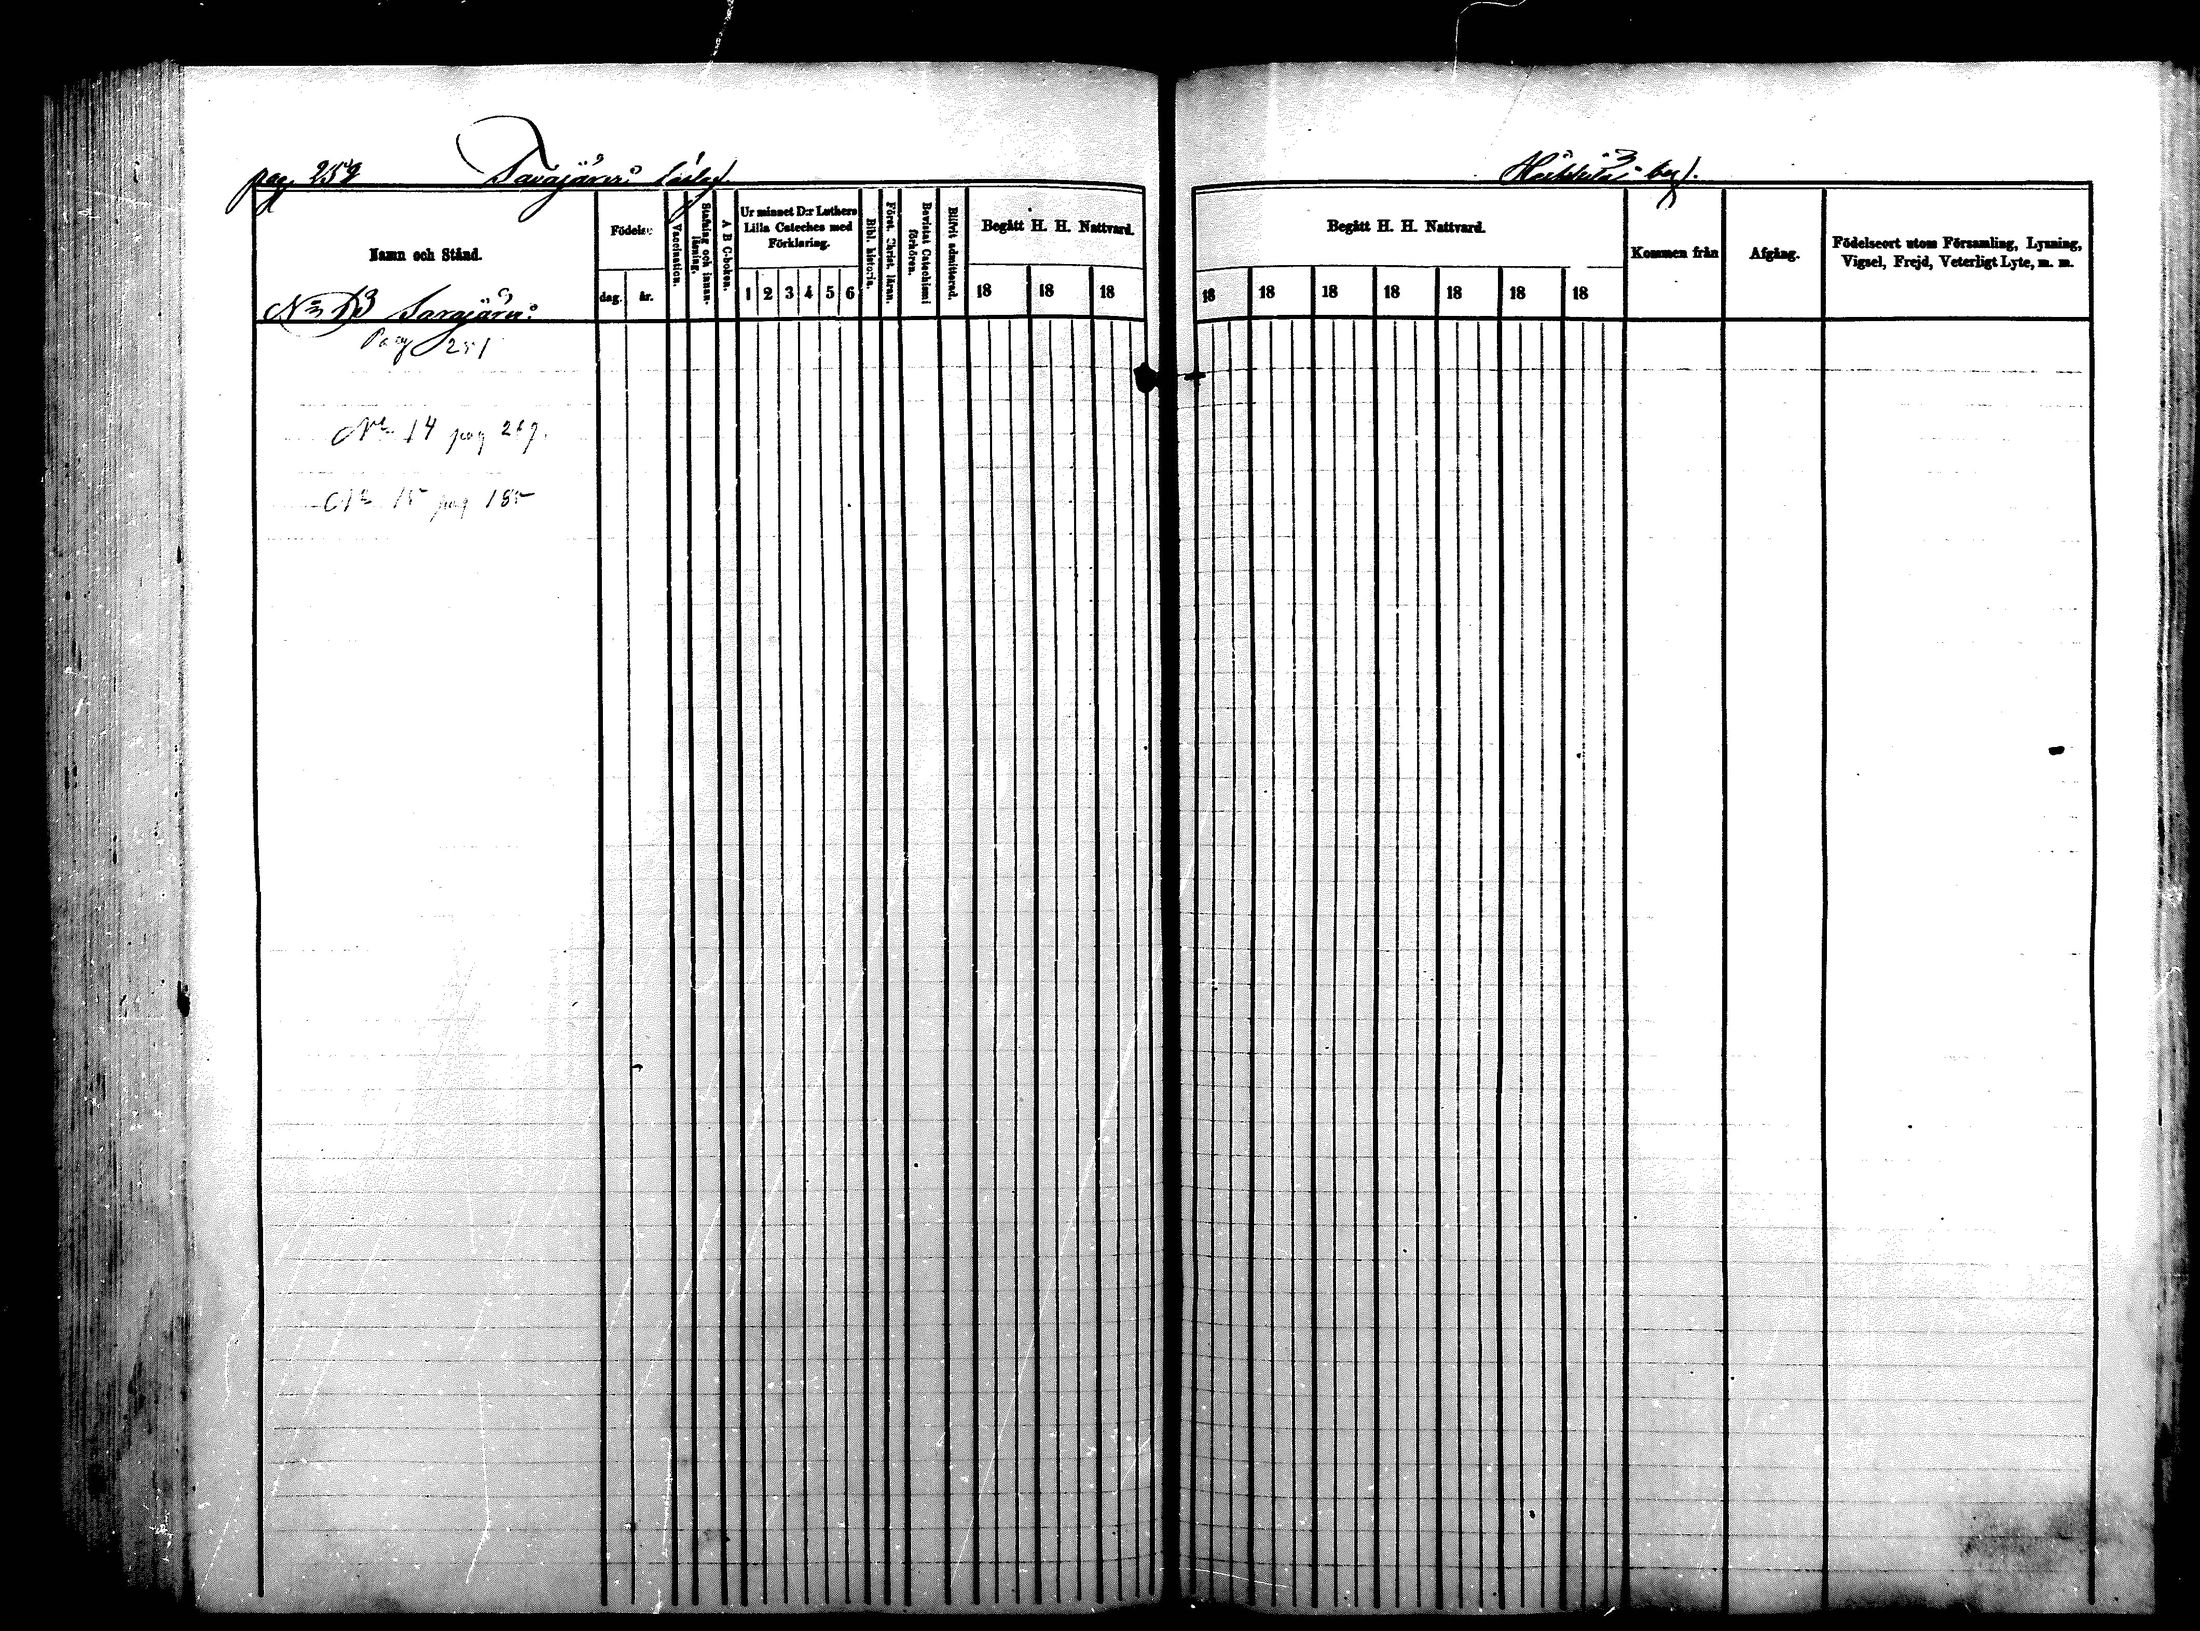 pag. 252
Savajärvi
by).
Namn och Stånd.
Födelse
dag. år.
Vaccination.
Stafning och innan-
läsning.
A B C-boken.
Ur minnet D:r Luthers
Lilla Cateches med
Förklaring.
1 2 3 4 5 6
Bibl. historia.
Förest. Christ. läran.
Bevistat Catechismi
förhören.
Blifvit admitterad.
Begått H. H. Nattvard.
18 18 18
Begått H. H. Nattvard.
18 18 18 18 18 18 18
Kommen från
Afgång.
Födelseort utom Församling, Lysning,
Vigsel, Frejd, Veterligt Lyte, m. m.
No 13 Savajärvi
Pag 251
No 14 pag 267.
No 15 pag 185